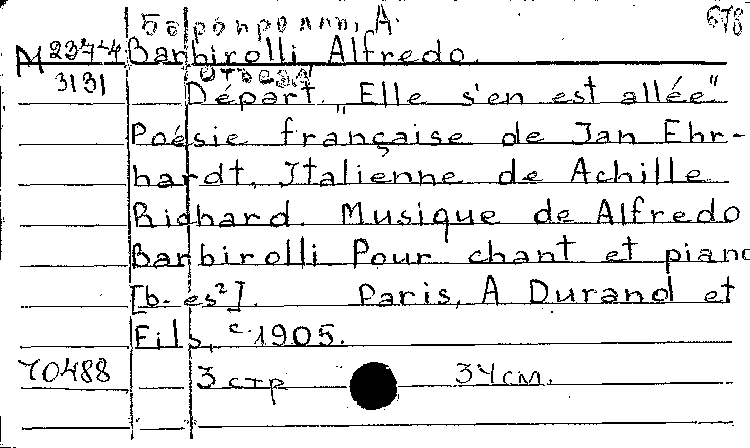 Барбиролли, А. 678
M 237-4 Barbirolli, Alfredo.
3131 Отъезд
Départ. „Elle s'en est allée"
Poésie française de Jan Ehr-
hardt, Italienne de Achille
Richard. Musique de Alfredo
Barbirolli Pour chant et piano
[b-es²]. Paris, A Durand et
Fils, c 1905.
70488 3 стр 34 см.